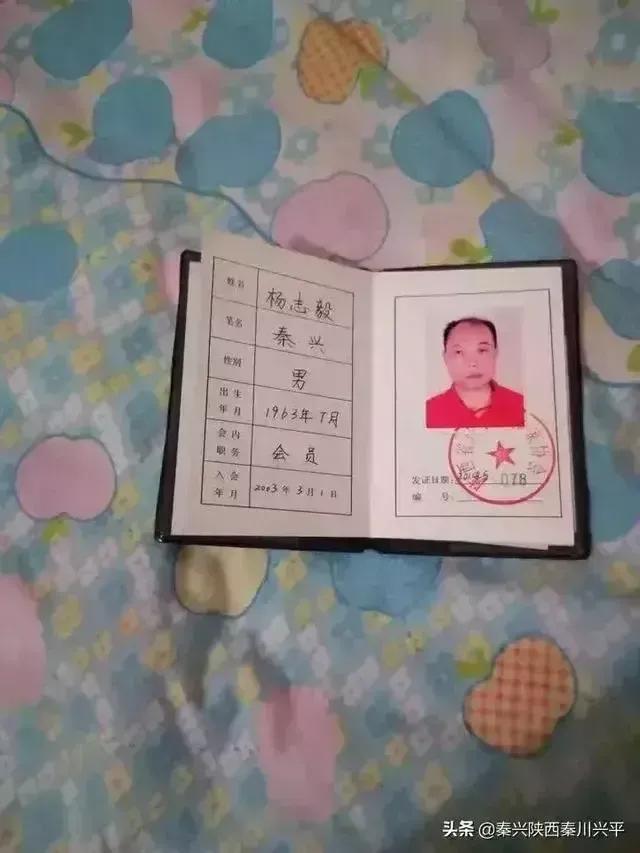 姓名 杨志毅
笔名 秦兴
性别 男
出生年月 1963年7月
会内职务 会员
入会年月 2003年3月1
发证日期:
078
编号:
头条 @秦兴陕西秦川兴平